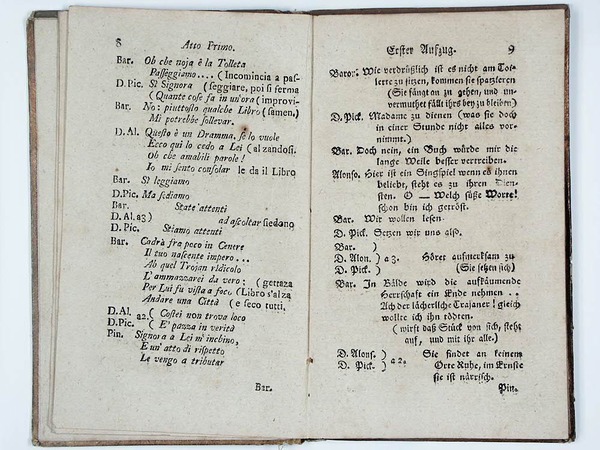 8
Atto Primo.
Bar. Oh che noja è la Tolleta
Passeggiamo.... (Incomincia a pas-
D.Pic. Sì Signora (seggiare, poi si ferma
(Quante cose fa in un'ora (improvi-
Bar. No: piuttosto qualche Libro (samen.)
Mi potrebbe sollevar.
D. Al. Questo è un Dramma, se lo vuole
Ecco qui lo cedo a Lei (alzandosi.
Oh che amabili parole!
Io mi sento consolar le da il Libro
Bar. Sì leggiamo
D.Pic. Ma sediamo
Bar. State'attenti
D.Al. a3) ad ascoltar siedono
D. Pic. Stiamo attenti
Bar. Cadrà fra poco in Cenere
Il tuo nascente impero...
Ah quel Trojan ridicolo
L'ammazzarei da vero; (gettaza
Per Lui fu vista a foco (Libro s'alza
Andare una Città (e seco tutti,
D. Al. a2. ( Costei non trova loco
D.Pic. ( E' pazza in verità
Pin. Signora a Lei m'inchino,
E un'atto di rispetto
Le vengo a tributar
Bar.
Erster Aufzug.
9
Baron. Wie verdrüßlich ist es nicht am Toi-
lette zu sitzen, kommen sie spatzieren
(Sie fängt an zu gehen, und un-
vermuthet fällt ihrs bey zu bleiben)
D. Pick. Madame zu dienen (was sie doch
in einer Stunde nicht alles vor-
nimmt.)
Bar. Doch nein, ein Buch würde mir die
lange Weile besser vertreiben.
Alonso. Hier ist ein Singspiel wenn es ihnen
beliebe, steht es zu ihren Dien-
sten. O — Welch süße Worte!
schon bin ich getröst.
Bar. Wir wollen lesen.
D. Pick. Setzen wir uns also.
Bar. )
D. Alon. ) a 3. Höret aufmerksam zu
D. Pick. ) (Sie setzen sich)
Bar. In Bälde wird die aufkäumende
Herrschaft ein Ende nehmen ..
Ach der lächerliche Trajaner! gleich
wollte ich ihn tödten.
(wirft daß Stück von sich, steht
auf, und mit ihr alle.)
D. Alons. ) a 2. Sie findet an keinem
D. Pick. ) Orte Ruhe, im Ernste
sie ist närrisch.
Pin.